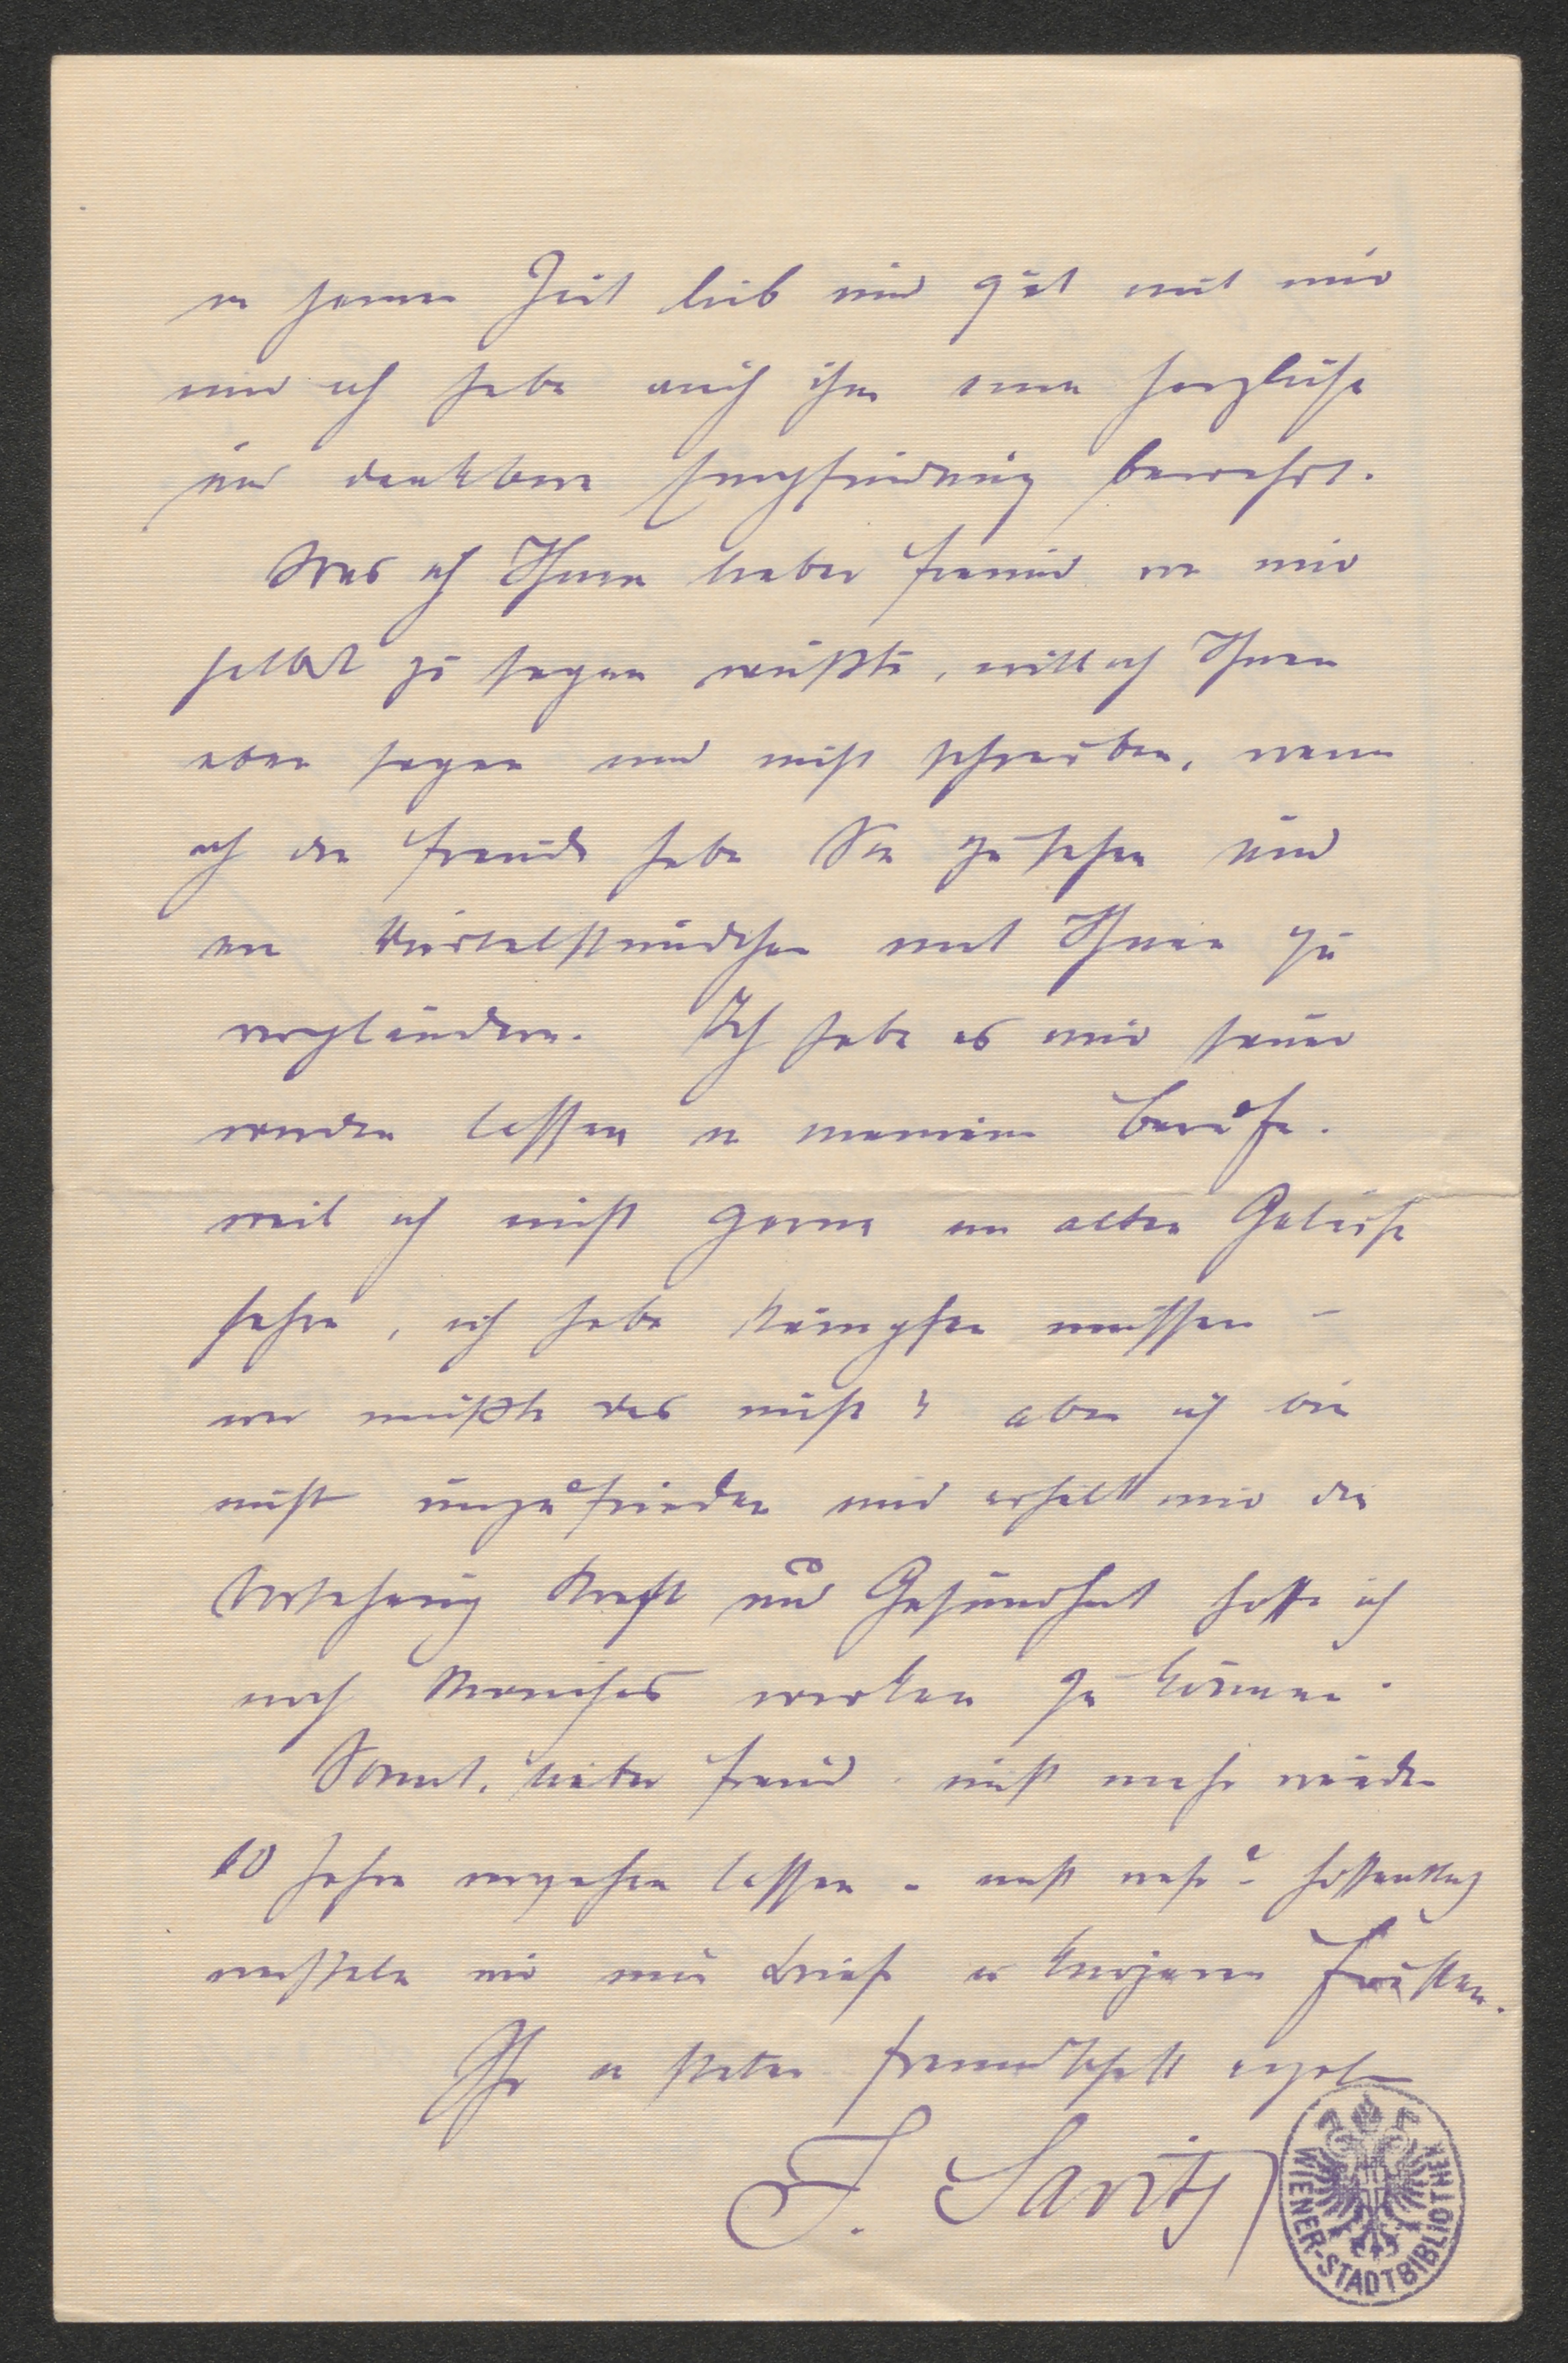 in jener Zeit lieb und gut mit mir
und ich habe auch ihm eine herzliche
und dankbare Empfindung bewahrt.
Was ich Ihnen lieber Freund von mir
selbst zu sagen wüßte, will ich Ihnen
eben sagen und nicht schreiben, wenn
ich die Freude habe Sie zu sehen und
ein Viertelstündchen mit Ihnen zu
verplaudern. Ich habe es mir sauer
werden lassen in meinem Berufe.
weil ich nicht gerne im alten Geleise
fahre, ich habe kämpfen müssen –
wer müßte das nicht? aber ich bin
nicht unzufrieden und erhält mir die
Vorsehung Kraft und Gesundheit hoffe ich
noch Manches wirken zu können.
Somit, lieber Freund. nicht mehr wieder
10 Jahre vergehen lassen – nicht wahr? – hoffentlich
wechseln wir nun Briefe in kürzeren Fristen.
Ihr in steter Freundschaft ergeb
J. Savits
WIENER-STADTBIBLIOTHEK